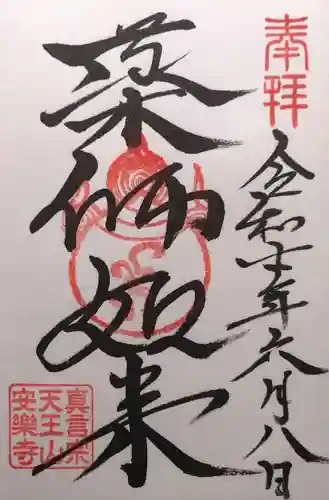 奉拝
令和七年六月八日
薬师如来
真言宗
天王山
安樂寺